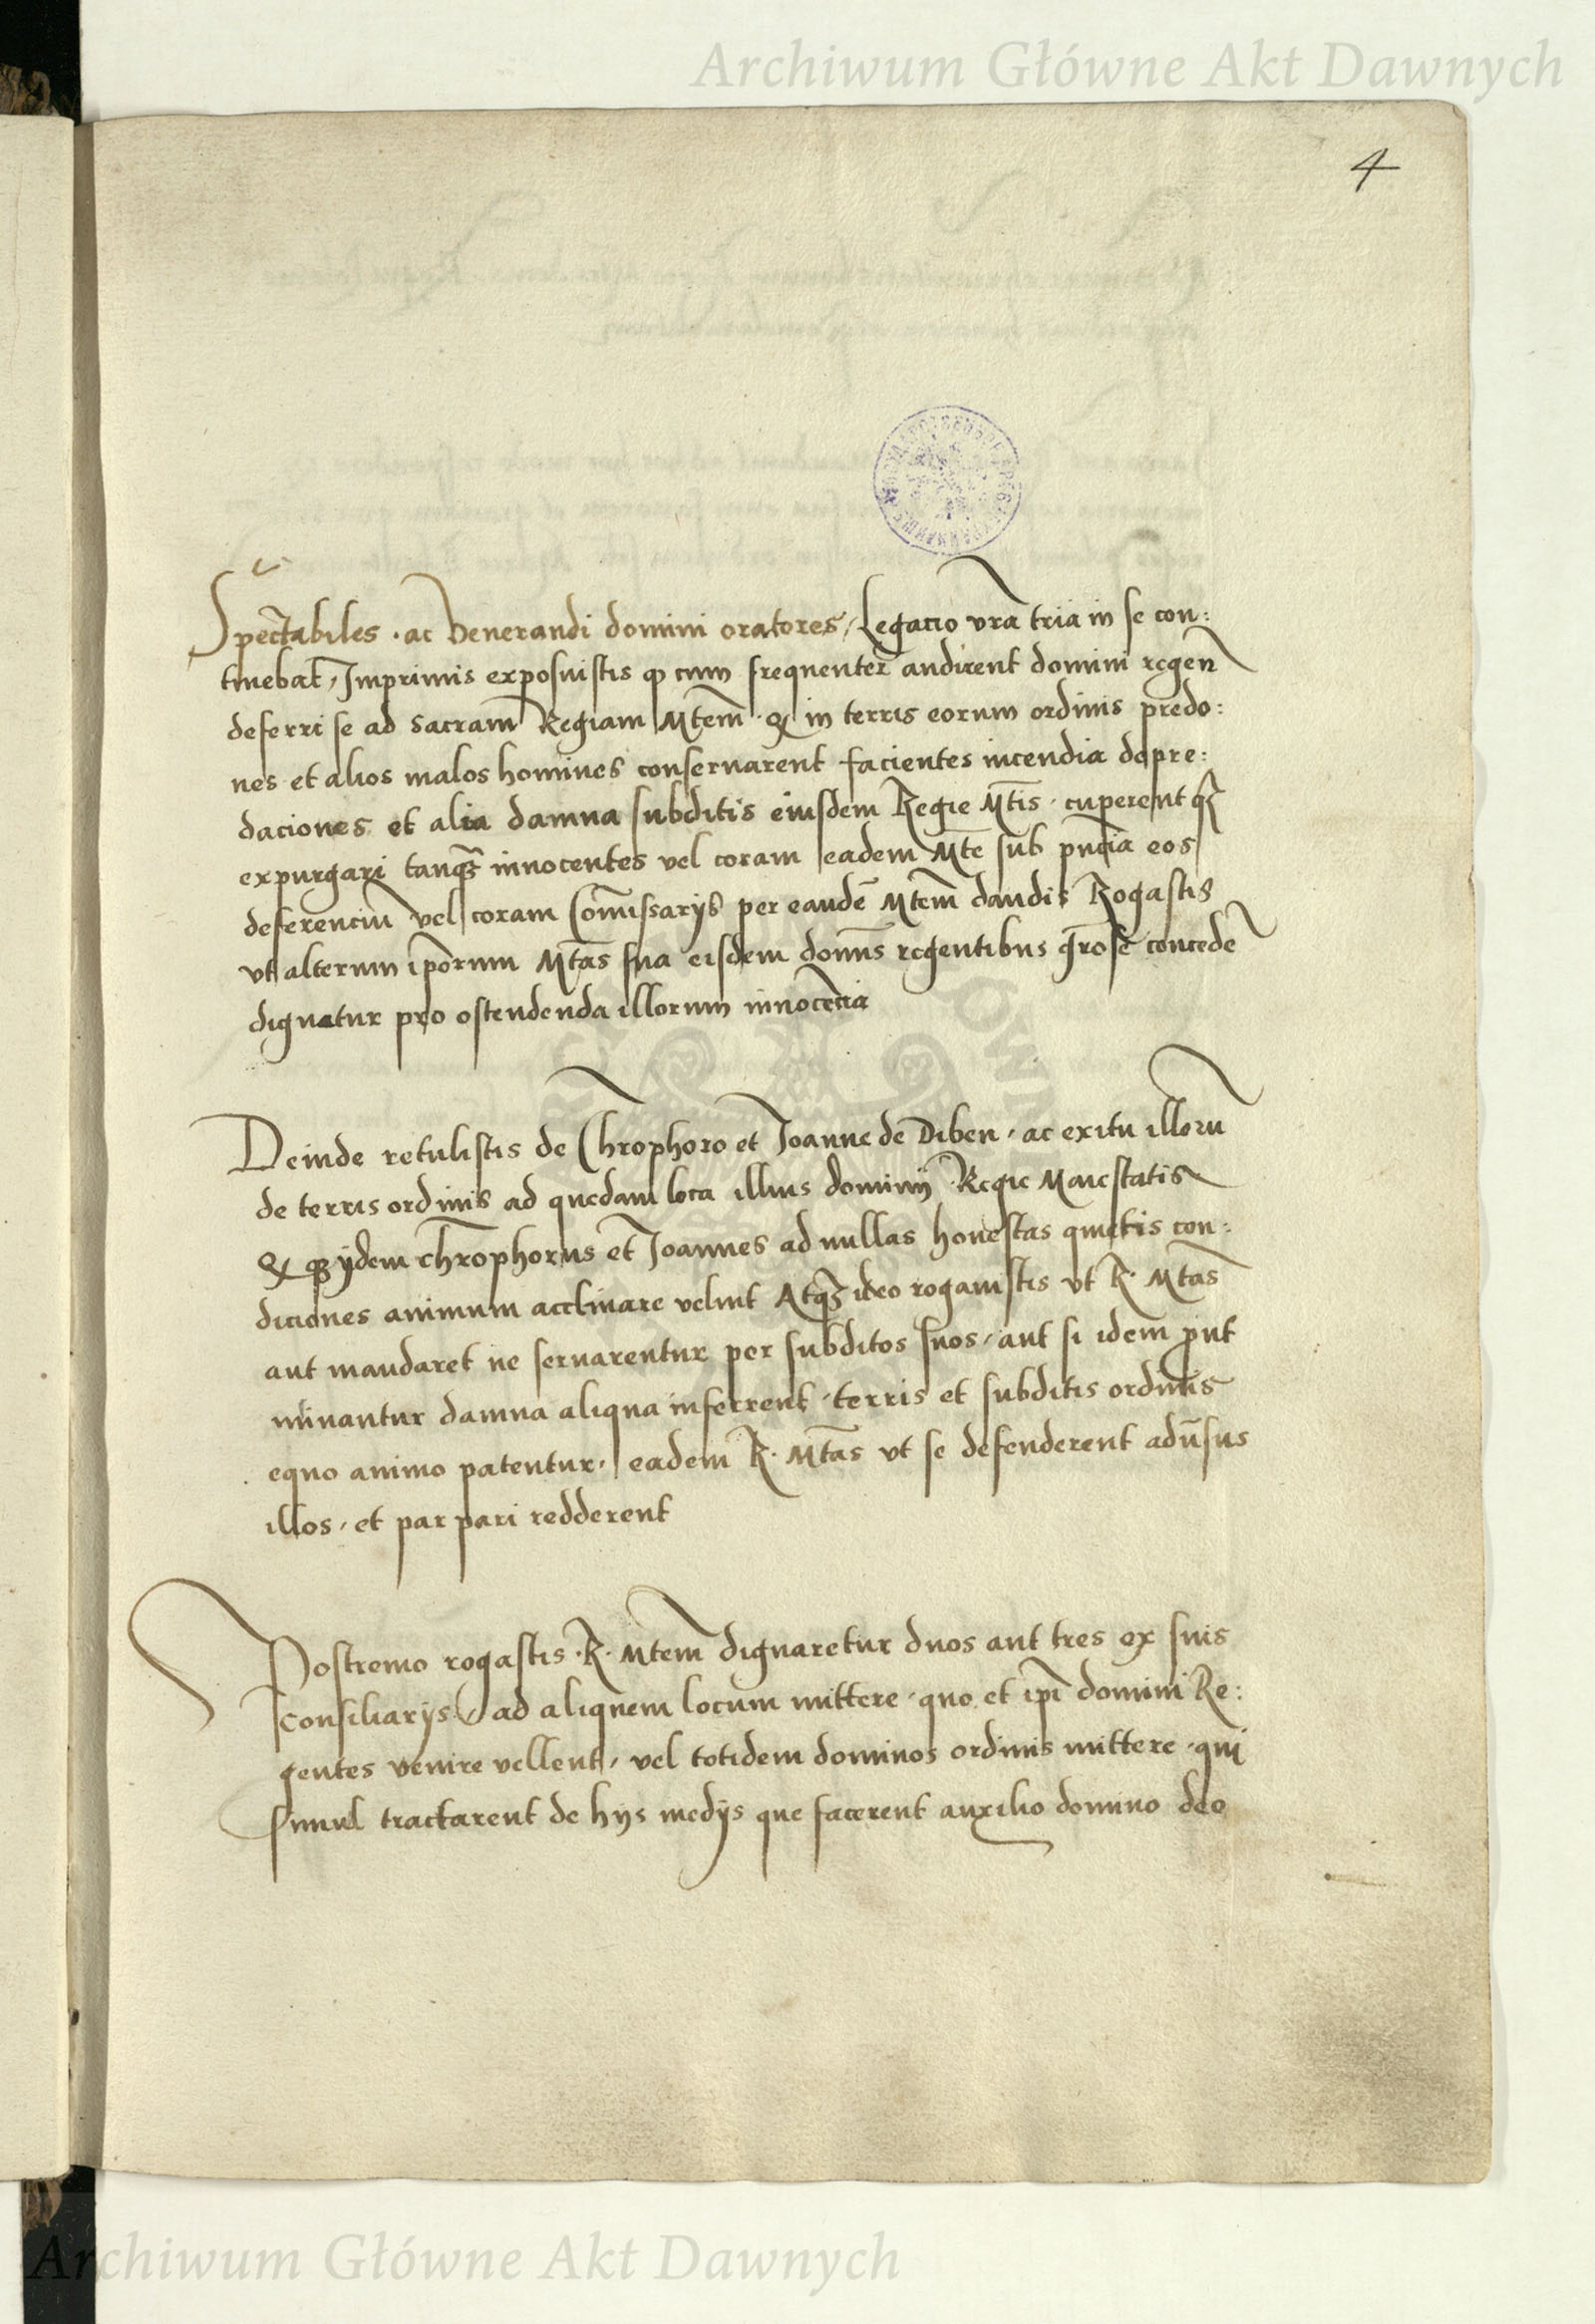 Archiwum Główne Akt Dawnych
4
Spectabiles · ac Venerandi domini oratores, Legacio vr̃a tria in se con:
tinebat, Imprimis exposuistis ꝙ cum frequenter audirent domini regen̄
deferri se ad sacram Regiam Mtem̄ · ꝙ in terris eorum ordinis predo:
nes et alios malos homines conseruarent facientes incendia depre:
daciones et alia damna subditis eiusdem Regie Mt̄is · cuperentqꝫ
expurgari tanqꝫ innocentes vel coram eadem Mt̄e sub pn̄cia eos
deferenciu̅ vel coram Com̄issarijs per eandē Mtem̄ dandis Rogastis
vt alterum ip̄orum Mt̄as sua eisdem domīs regentibus gr̄ose concedē
dignetur pro ostendenda illorum innocēcia
Deinde retulistis de Chr̄ophoro et Joanne de Diben · ac exitu illoru̅
de terris ordinis ad quedam loca illius dominij Regie Maiestatis
ꝙ ijdem chr̄ophorus et Joannes ad nullas honestas quietis con:
diciones animum acclinare velint Atqꝫ ideo rogauistis vt R · Mt̄as
aut mandaret ne seruarentur per subditos suos, aut si idem prout
minantur damna aliqua inferrent · terris et subditis ordinis
equo animo patentur, eadem R · Mt̄as vt se defenderent adu̅sus
illos, et par pari redderent
Postremo rogastis · R · Mtem̄ dignaretur duos aut tres ex suis
consiliarijs ad aliquem locum mittere · quo et ip̄i domini Re:
gentes venire vellent, vel totidem dominos ordinis mittere · qui
simul tractarent de hijs medijs que facerent auxilio domino deo
Archiwum Główne Akt Dawnych